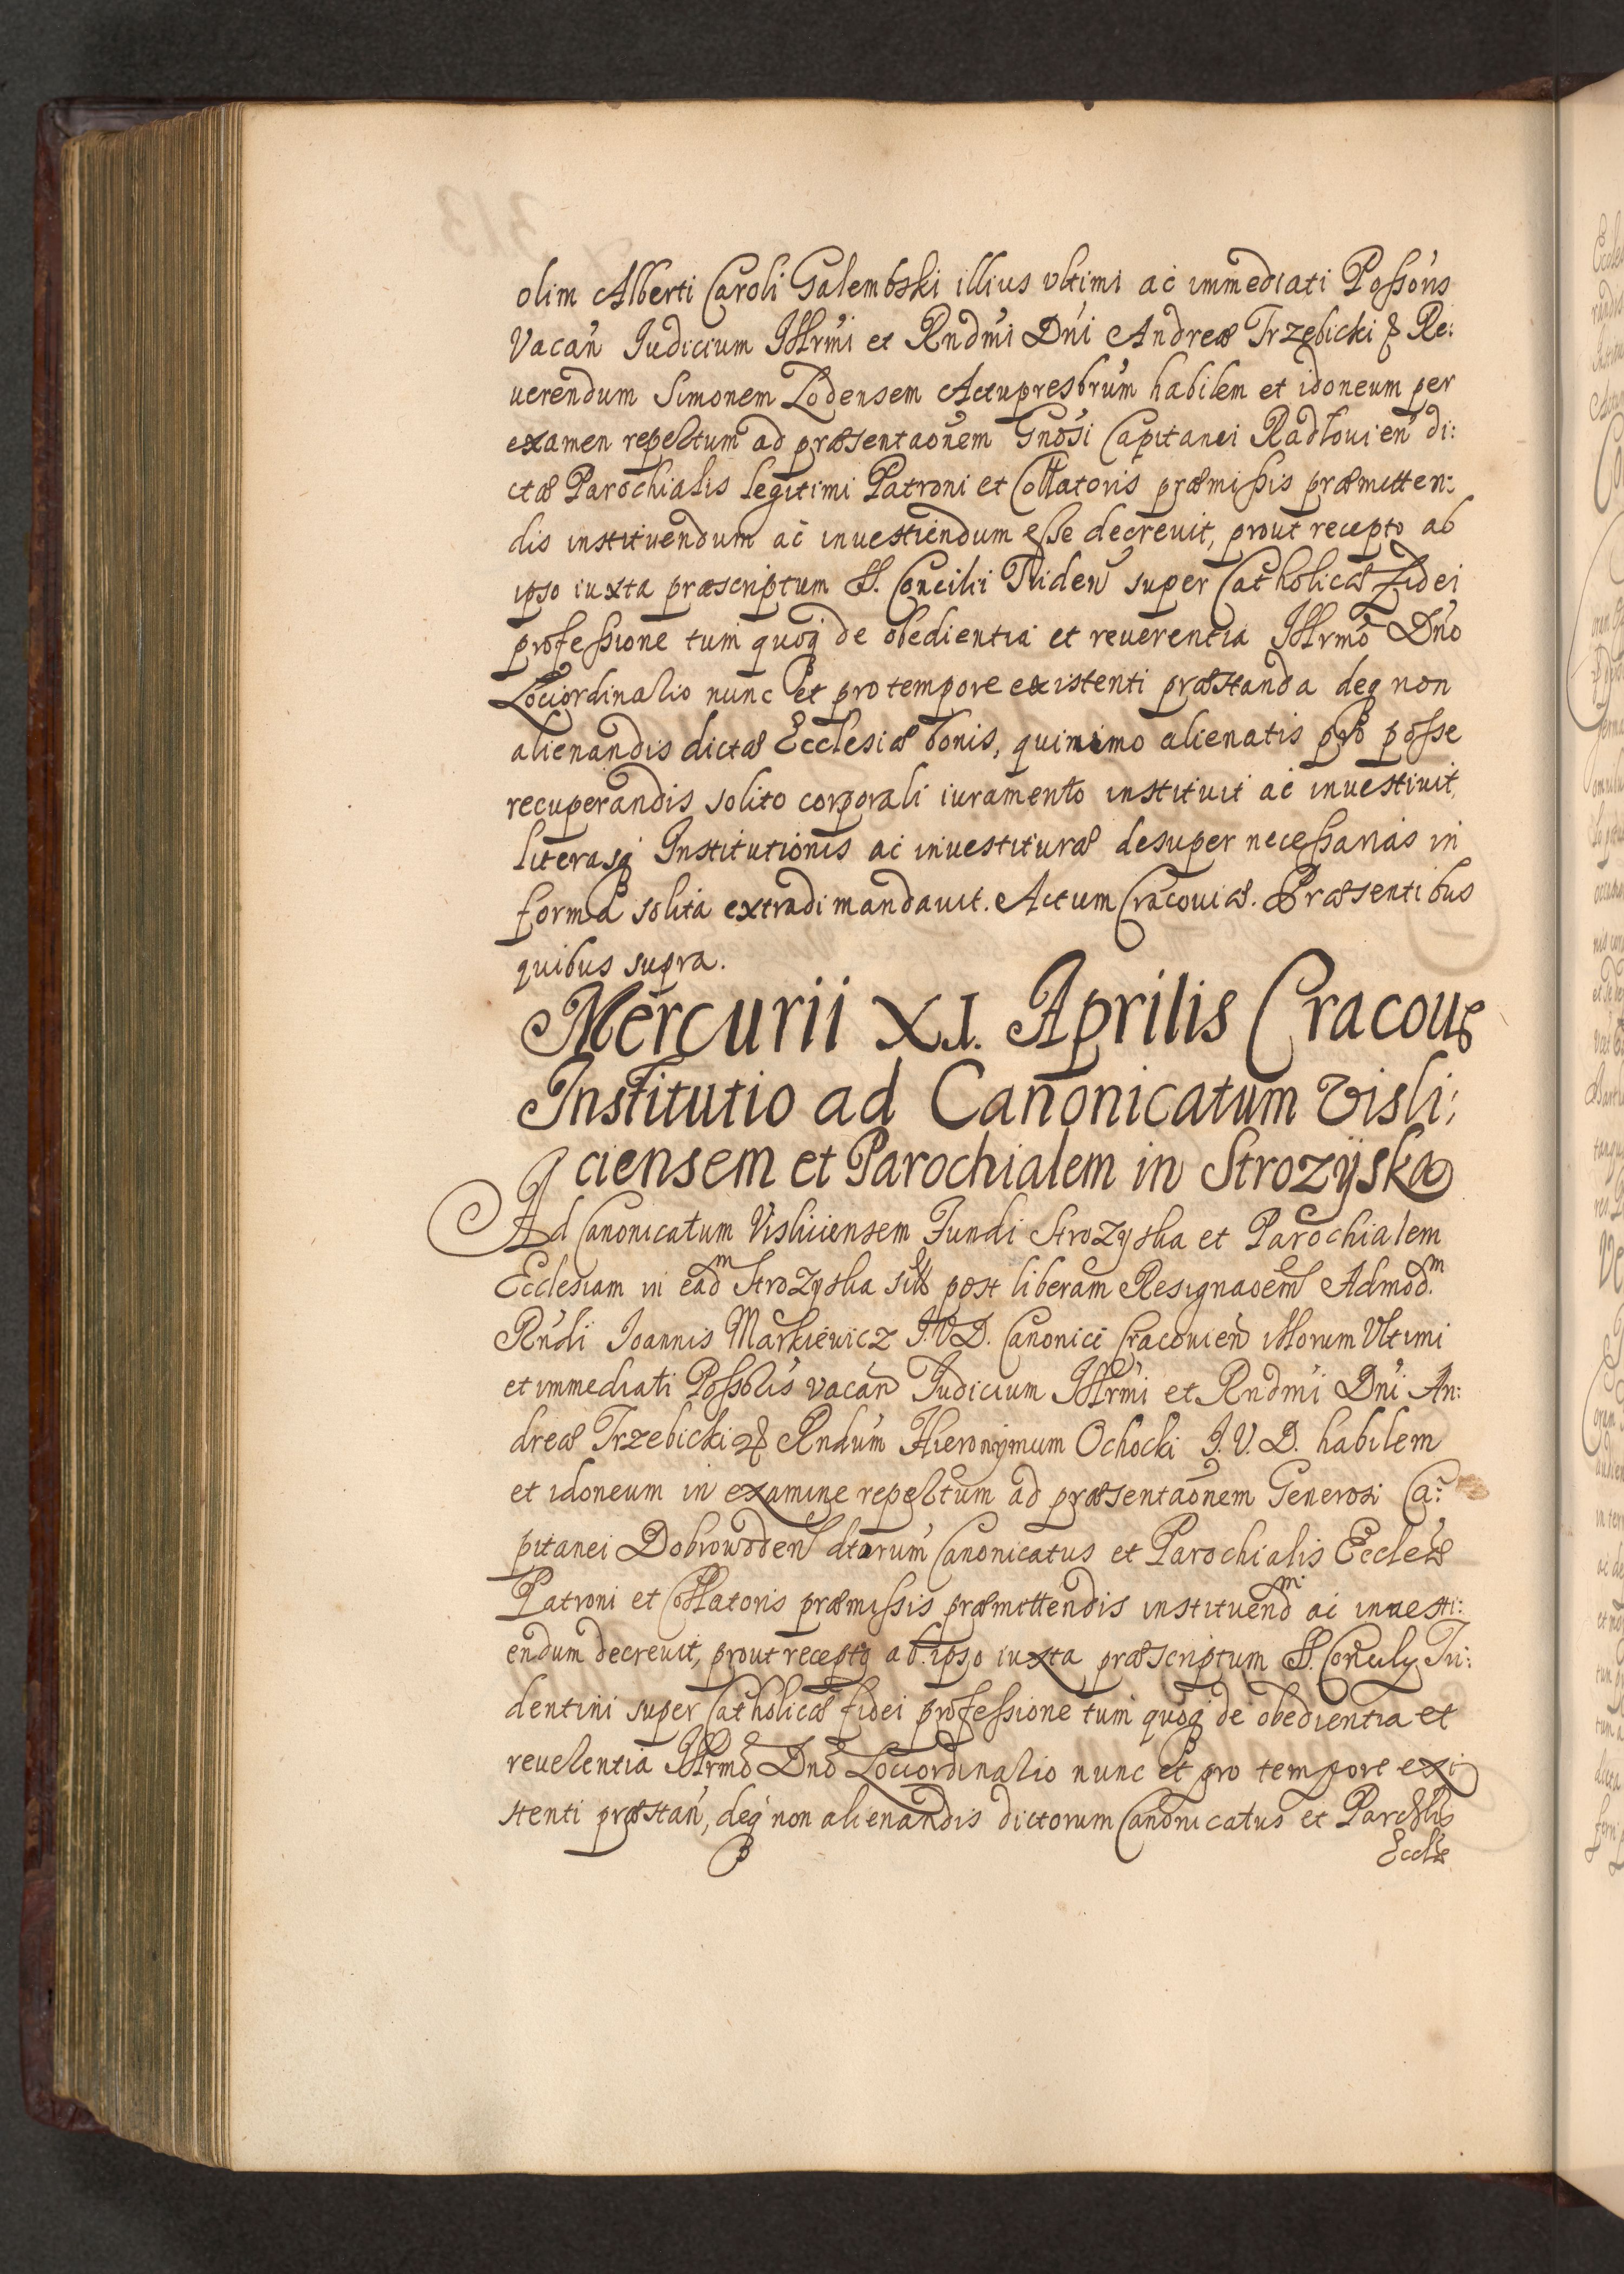 olim Alberti Caroli Galembski illius vltimi ac immediati Possoris
Vacan Iudicium Illrmi et Rndmi Dni Andreæ Trzebicki & Re:
uerendum Simonem Lodensem Actupresbrum habilem et idoneum per
examen repertum ad præsentaonem Gnosi Capitanei Radlouien di:
ctæ Parochialis legitimi Patroni et Collatoris præmissis præmitten:
dis instituendum ac inuestiendum esse decreuit, prout recepto ab
ipso iuxta præscriptum S. Concilii Triden super Catholicæ Fidei
professione tum quoq de obedientia et reuerentia Illrmo Dno
Lociordinario nunc et pro tempore existenti præstanda deq non
alienandis dictæ Ecclesiæ bonis, quinimo alienatis pro posse
recuperandis solito corporali iuramento instituit ac inuestiuit,
literasq Institutionis ac inuestituræ desuper necessarias in
forma solita extradi mandauit. Actum Cracouiæ. Præsentibus
quibus supra.
Mercurii XI. Aprilis Cracouiæ
Institutio ad Canonicatum Visli:
ciensem et Parochialem in Strozÿska
Ad Canonicatum Visliciensem Fundi Strozyska et Parochialem
Ecclesiam in eadm Strozyska post liberam Resignaoem Admodm
Rndi Ioannis Markiewicz I.V.D. Canonici Cracouien illorum Vltimi
et immediati Possoris vacan Iudicium Illrmi et Rndmi Dni An:
dreæ Trzebicki & Rndum Hieronymum Ochocki I.V.D. habilem
et idoneum in examine repertum ad præsentaonem Generosi Ca:
pitanei Dobrowoden dtorum Canonicatus et Parochialis Eccleæ
Patroni et Collatoris præmissis præmittendis instituendm ac inuesti:
endum decreuit, prout recepto ab ipso iuxta præscriptum S. Concily Tri:
dentini super Catholicæ fidei professione tum quoq de obedientia et
reuerentia Illrmo Dno Lociordinario nunc et pro tempore exi
stenti præstan, deq non alienandis dictorum Canonicatus et Parochlis
Eccliæ